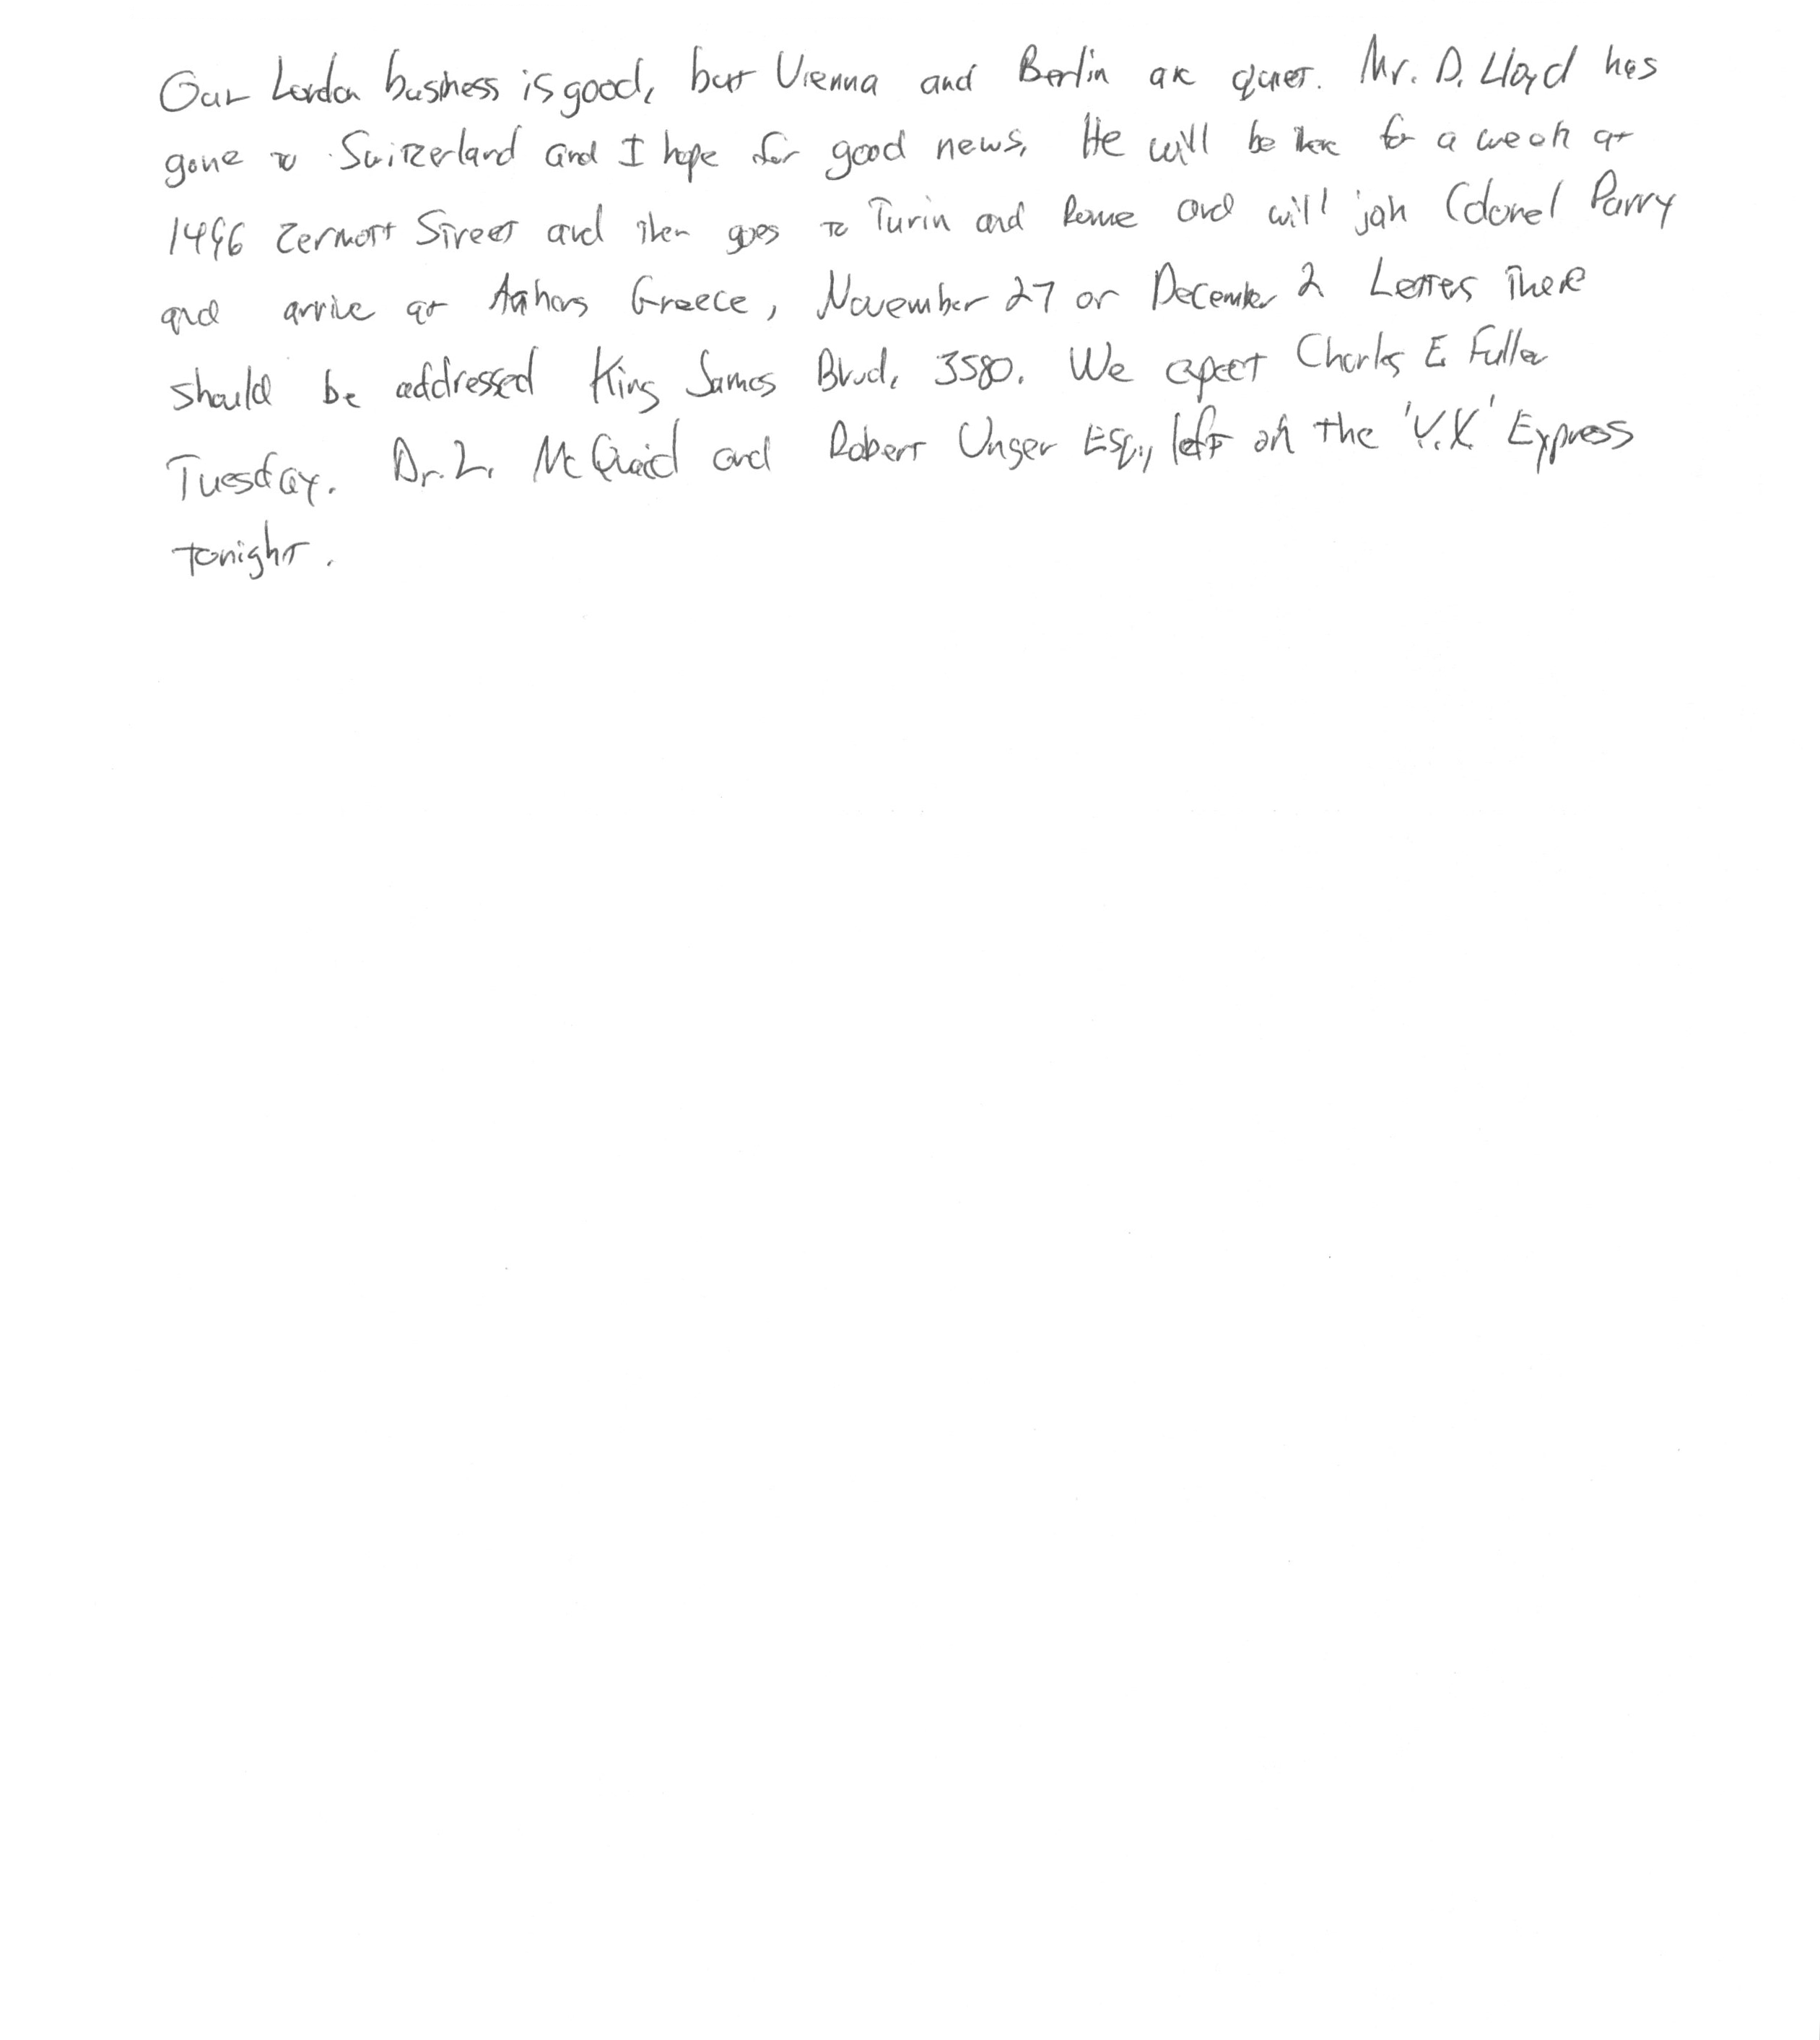 Our London business is good, but Vienna and Berlin are quiet. Mr. D. Lloyd has
gone to Switzerland and I hope for good news. He will be there for a week at
1496 Zermott Street and then goes to Turin and Rome and will join Colonel Parry
and arrive at Athens Greece, November 27 or December 2. Letters there
should be addressed King James Blvd, 3580. We expect Charles E Fuller
Tuesday. Dr. L. McQuaid and Robert Unger Esq., left on the 'Y.X.' Express
tonight.